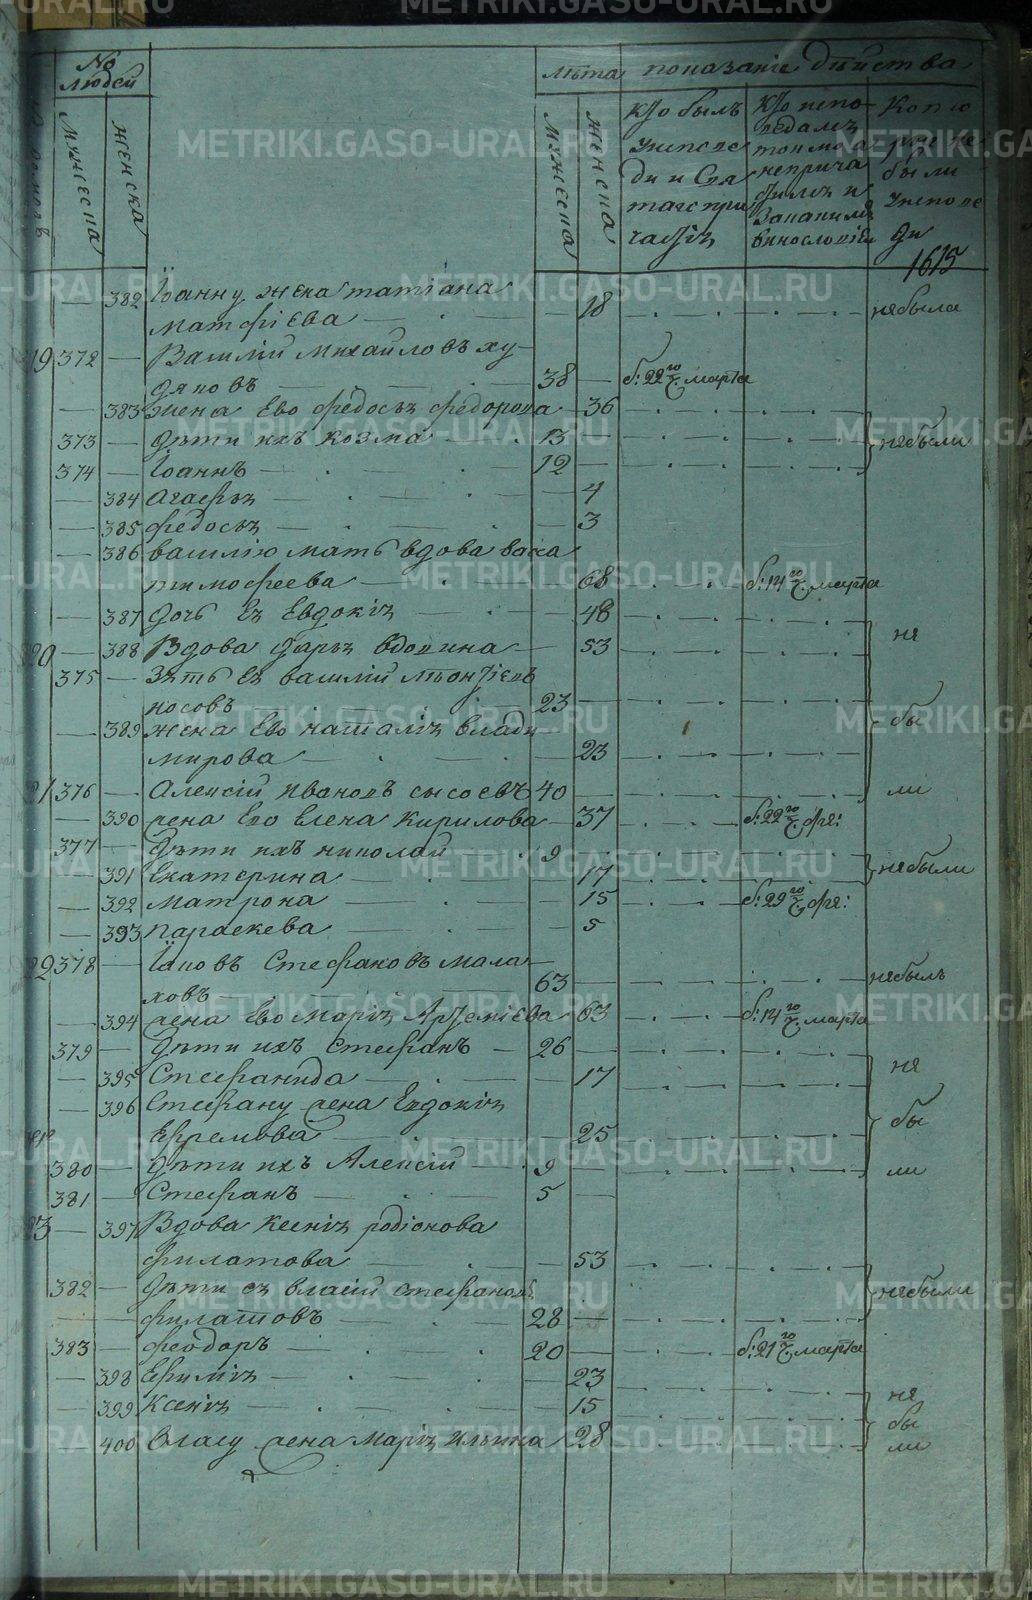 № людей
лѣта показаніе дѣйства
мужеска
женска
мужеска
женска
Кто былъ
у исповѣ
ди и Свя
таго при
частія
Кто испо-
ведалъ
той мо
а
неприча
стилъ и
Закаким
винословіем
Кто
не
были
у исповѣ
ди
1615
— 382 Їоанну жена татіана
матфіева — — 18 небыла
19 372 — Василій михайловъ ху-
дяковъ — 38 — б: 22го ч. марта
— 383 жена Ево федосъя федорова — 36
373 — дѣти ихъ козма 13 — небыли
374 — Їоаннъ — 12 —
— 384 агафъя — — 4
— 385 федосъя — — 3
— 386 василію мать вдова васса
тимофеева — — 68 б: 14го ч. марта
— 387 дочь Ея Евдокія — 48
20 — 388 Вдова даръя — 53 не
375 — Зять Ея василий леонтіевъ
носовъ 23 — бы
— 389 жена Ево наталія влади
мирова — — 23
21 376 — Алексій ивановъ сысоевъ 40 — ли
— 390 жена Ево Елена кирилова — 37 б: 22го ч. фев:
377 — дѣти ихъ николай 9 — небыли
— 391 Екатерина — — 17
— 392 матрона — — 15 б: 29го ч. фев:
— 393 параскева — — 5
22 378 — Їаковъ Стефановъ мала-
ховъ — 63 — небылъ
— 394 жена Ево марія Артеміева — 63 б: 14го ч. марта
379 — дѣти ихъ Стефанъ — 26 —
— 395 Стефанида — — 17 не
— 396 Стефану жена Евдокія
Ефремова — — 25 бы
380 — дѣти ихъ Алексій — 9 — ли
381 — Стефанъ — 5 —
23 — 397 Вдова ксенія родіонова
филатова — — 53
382 — дѣти ея власій стефановъ небыли
филатовъ — 28 —
383 — феодоръ — 20 — б: 21го ч. марта
— 398 Ефимія — — 23
— 399 ксенія — — 15 не
бы
— 400 Власу жена марія ильина — 28 ли
METRIKI.GASO-URAL.RU